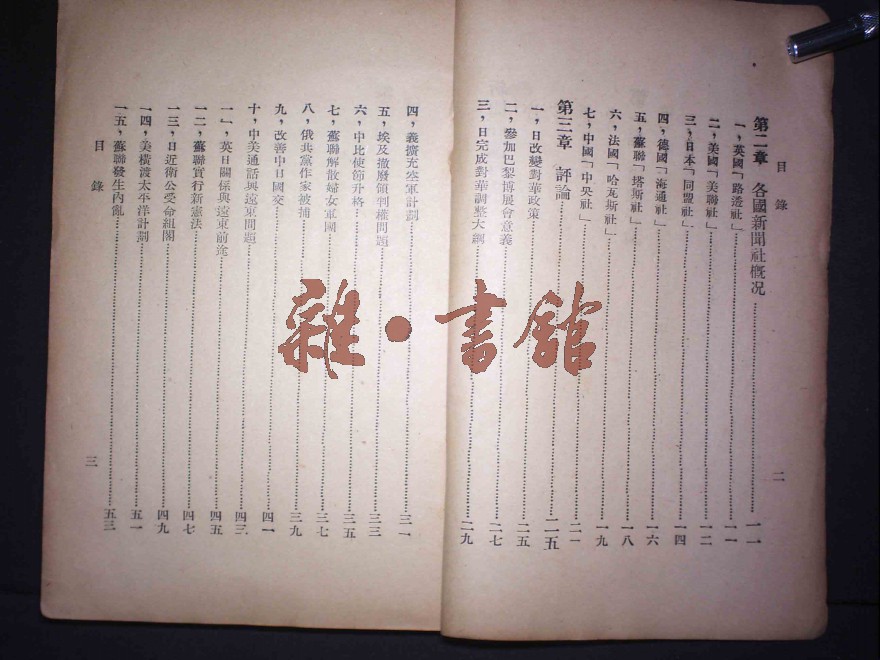 目錄
第二章 各國新聞社概况……一一
一，英國「路透社」……一一
二，美國「美聯社」……一二
三，日本「同盟社」……一四
四，德國「海通社」……一六
五，蘇聯「塔斯社」……一八
六，法國「哈瓦斯社」……一九
七，中國「中央社」……二一
第三章 評論……二五
一，日改變對華政策……二五
二，參加巴黎博展會意義……二七
三，日完成對華調整大綱……二九
二
四，義擴充空軍計劃……三一
五，埃及撤廢領判權問題……三三
六，中比使節升格……三五
七，蘇聯解散婦女軍國……三七
八，俄共黨作家被捕……三九
九，改善中日國交……四一
十，中美通話與遠東問題……四三
一一，英日關係與遠東前途……四五
一二，蘇聯實行新憲法……四七
一三，日近衛公受命組閣……四九
一四，美橫渡太平洋計劃……五一
一五，蘇聯發生內亂……五三
目錄
三
雜·書館